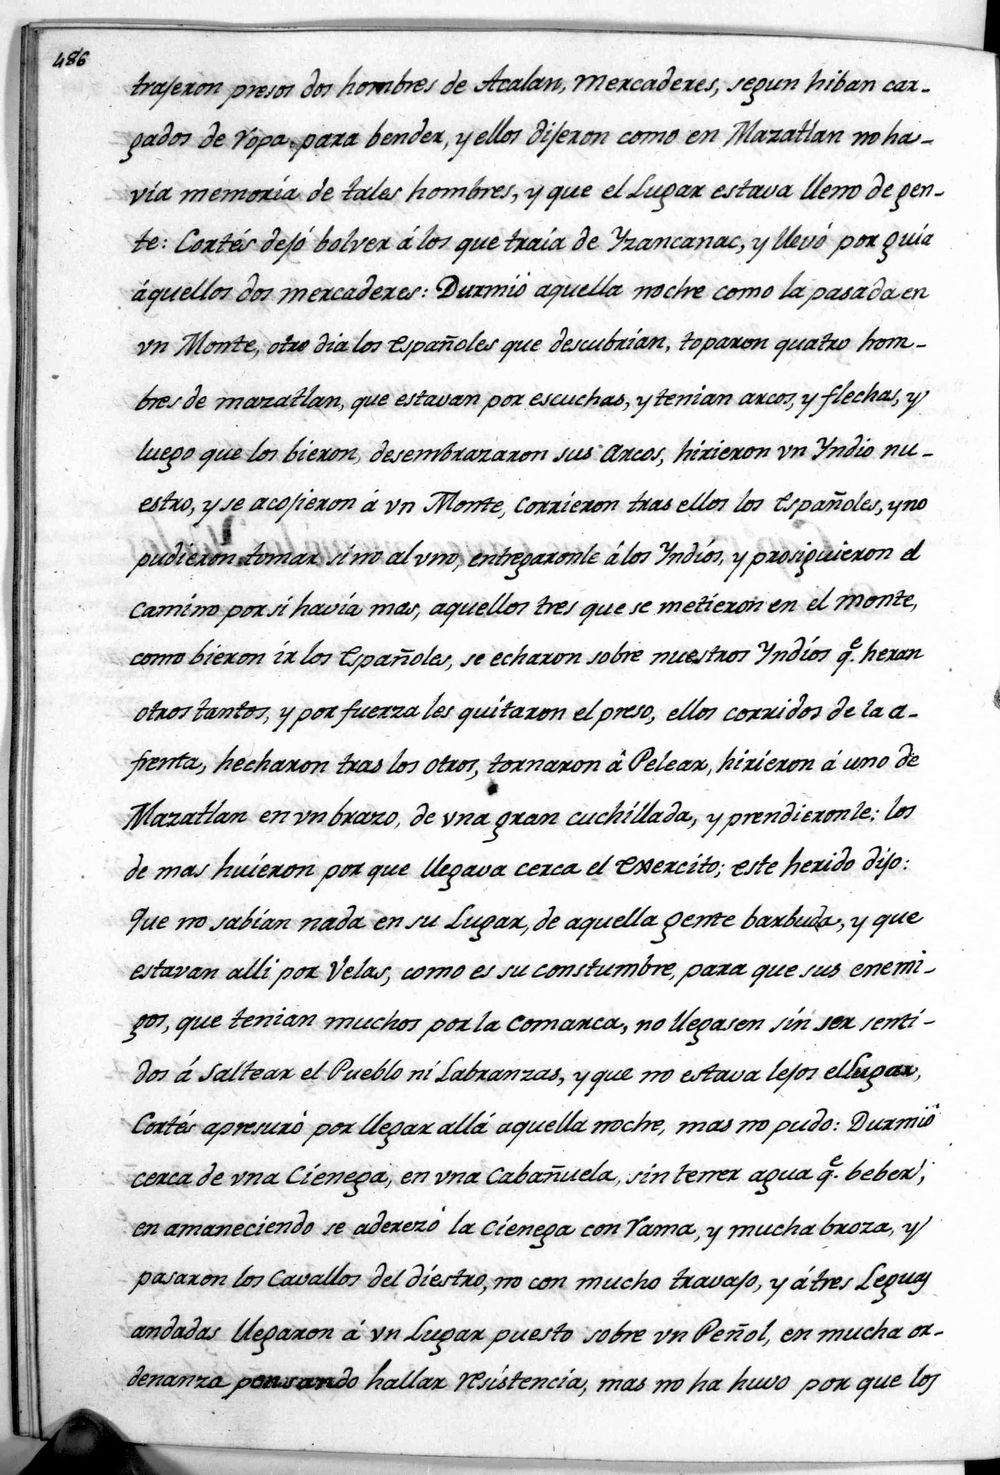 486
trajeron presos dos hombres de Acalan, Mercaderes, segun hiban car-
gados de ropa para bender, y ellos dijeron como en Mazatlan no ha-
via memoria de tales hombres, y que el Lugar estava lleno de gen-
te: Cortés dejó bolver á los que traía de Yzancanac, y llevó por guía
áquellos dos mercaderes: Durmió aquella noche como la pasada en
vn Monte, otro dia los Españoles que descubrian, toparon quatro hom-
bres de mazatlan, que estavan por escuchas, y tenian arcos, y flechas, y
luego que los bieron, desembrazaron sus Arcos, hirieron vn Yndio nu-
estro, y se acojieron á vn Monte, Corrieron tras ellos los Españoles, y no
pudieron tomar sino al vno, entregaronle á los Yndíos, y prosiguieron el
camino por si havía mas, aquellos tres que se metieron en el monte,
como bieron ir los Españoles, se echaron sobre nuestros Yndíos qe. heran
otros tantos, y por fuerza les quitaron el preso, ellos corridos de la a-
frenta, hecharon tras los otros, tornaron á Pelear, hirieron á uno de
Mazatlan en vn brazo, de vna gran cuchillada, y prendieronle; los
de mas huieron por que llegava cerca el exercito; este herido dijo:
Que no sabían nada en su Lugar, de aquella gente barbuda, y que
estavan alli por Velas, como es su constumbre, para que sus enemi-
gos, que tenian muchos por la Comarca, no llegasen sin ser senti-
dos á Saltear el Pueblo ni Labranzas, y que no estava lejos el Lugar,
Cortés apresuró por llegar allá aquella noche, mas no pudo: Durmió
cerca de vna Cíenega, en vna Cabañuela, sin tener agua qe. beber;
en amaneciendo se aderezó la cíenega con rama, y mucha broza, y
pasaron los Cavallos del diestro, no con mucho travajo, y á tres Leguas
andadas llegaron á vn Lugar puesto sobre vn Peñol, en mucha or-
denanza pensando hallar resistencia, mas no ha huvo por que los